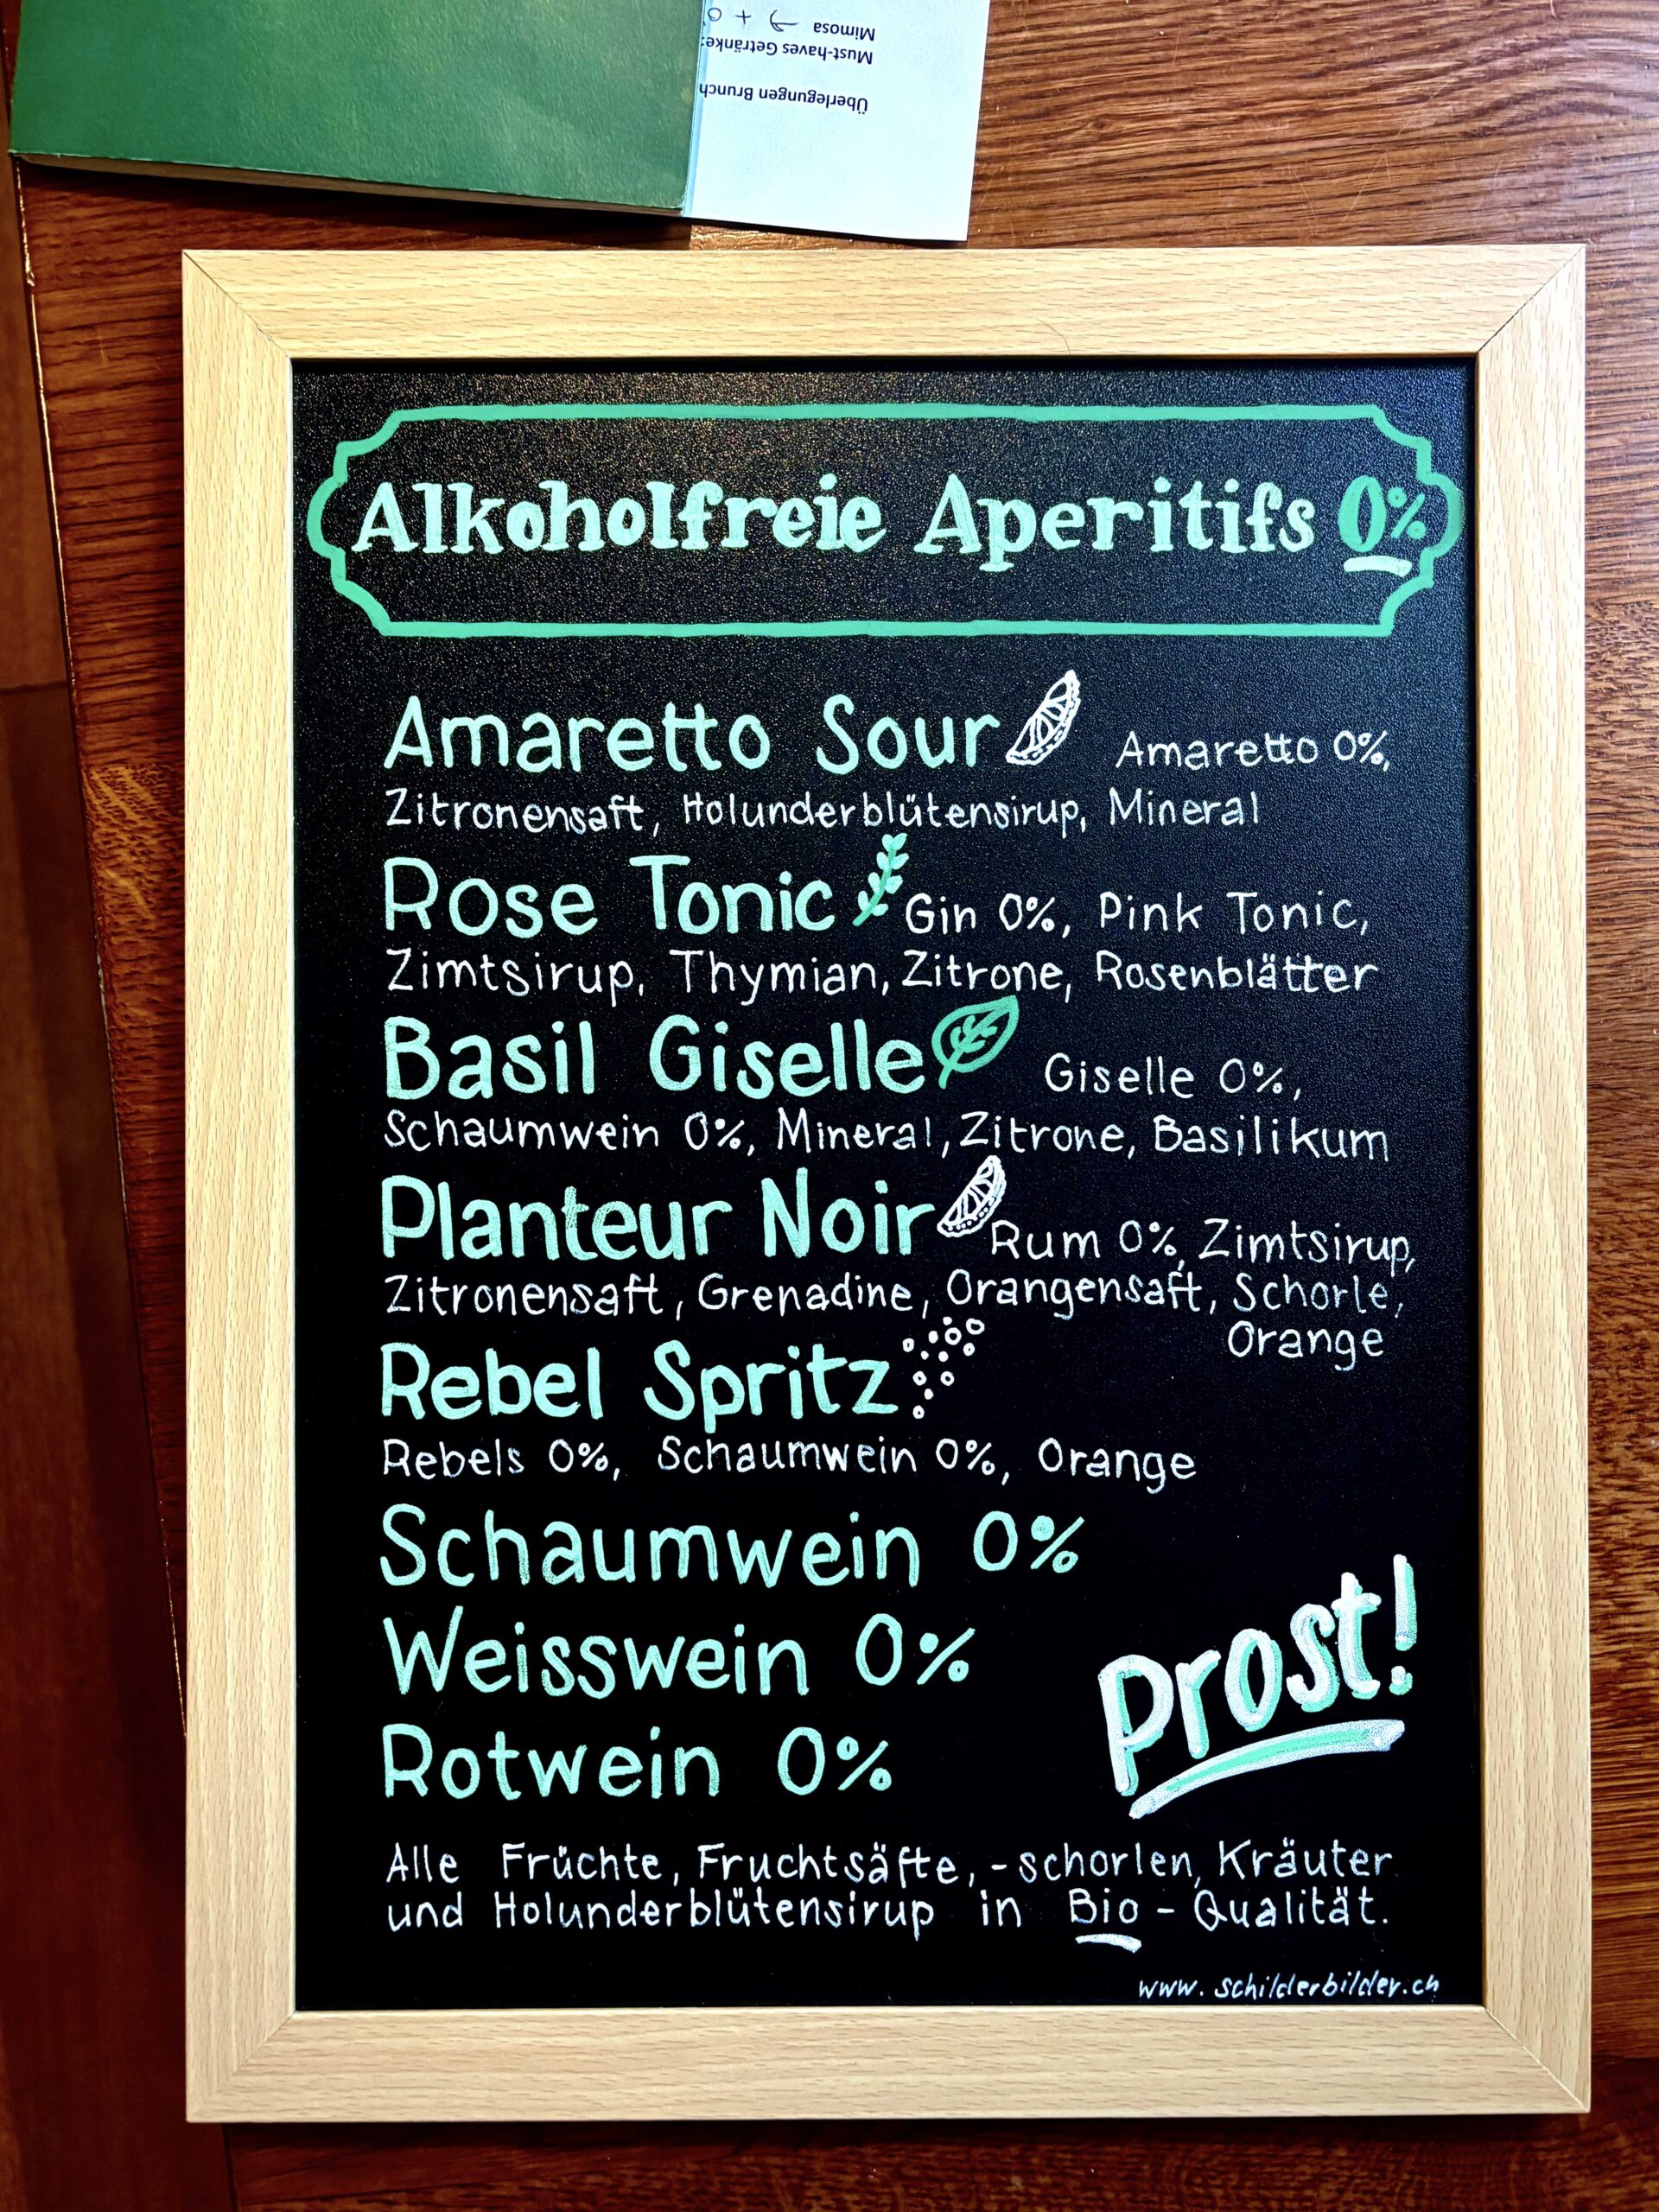 Überlegungen Brunch
Must-haves Getränke:
Mimosa → +
Alkoholfreie Aperitifs 0%
Amaretto Sour Amaretto 0%,
Zitronensaft, Holunderblütensirup, Mineral
Rose Tonic Gin 0%, Pink Tonic,
Zimtsirup, Thymian, Zitrone, Rosenblätter
Basil Giselle Giselle 0%,
Schaumwein 0%, Mineral, Zitrone, Basilikum
Planteur Noir Rum 0%, Zimtsirup,
Zitronensaft, Grenadine, Orangensaft, Schorle,
Orange
Rebel Spritz
Rebels 0%, Schaumwein 0%, Orange
Schaumwein 0%
Weisswein 0%
Rotwein 0%
Prost!
Alle Früchte, Fruchtsäfte, -schorlen, Kräuter
und Holunderblütensirup in Bio - Qualität.
www.schilderbilder.ch